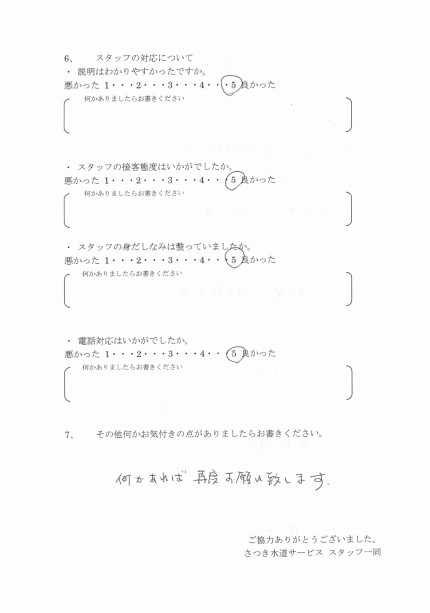 6、　スタッフの対応について
・ 説明はわかりやすかったですか。
悪かった 1・・・2・・・3・・・4・・・5 良かった
何かありましたらお書きください
・ スタッフの接客態度はいかがでしたか。
悪かった 1・・・2・・・3・・・4・・・5 良かった
何かありましたらお書きください
・ スタッフの身だしなみは整っていましたか。
悪かった 1・・・2・・・3・・・4・・・5 良かった
何かありましたらお書きください
・ 電話対応はいかがでしたか。
悪かった 1・・・2・・・3・・・4・・・5 良かった
何かありましたらお書きください
7、　その他何かお気付きの点がありましたらお書きください。
何かあれば 再度お願い致します.
ご協力ありがとうございました。
さつき水道サービス スタッフ一同